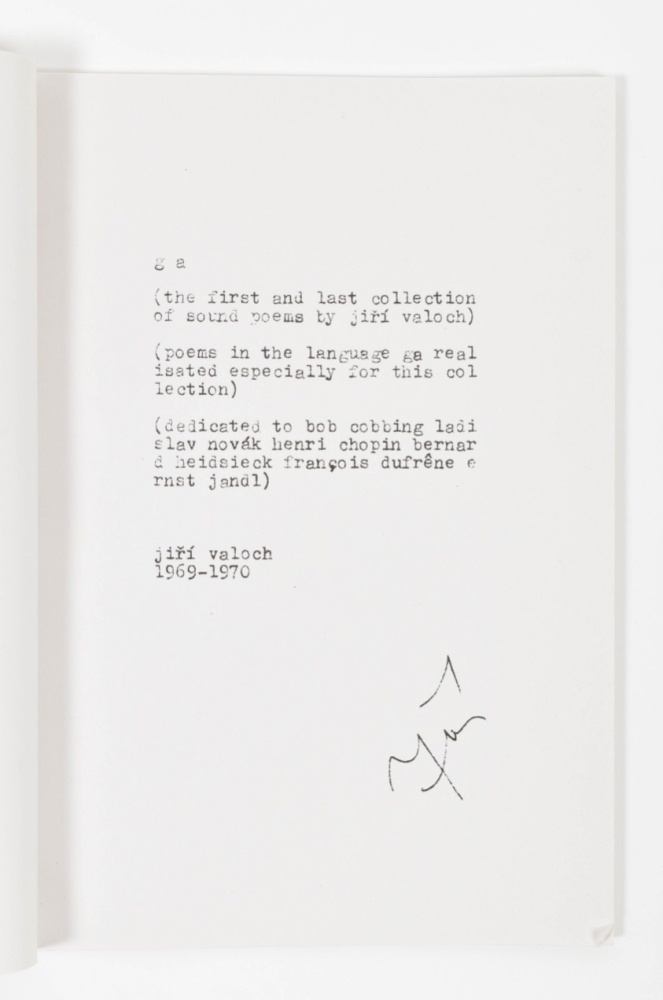 g a
(the first and last collection
of sound poems by jiří valoch)
(poems in the language ga real
isated especially for this col
lection)
(dedicated to bob cobbing ladi
slav novák henri chopin bernar
d heidsieck françois dufrêne e
rnst jandl)
jiří valoch
1969-1970